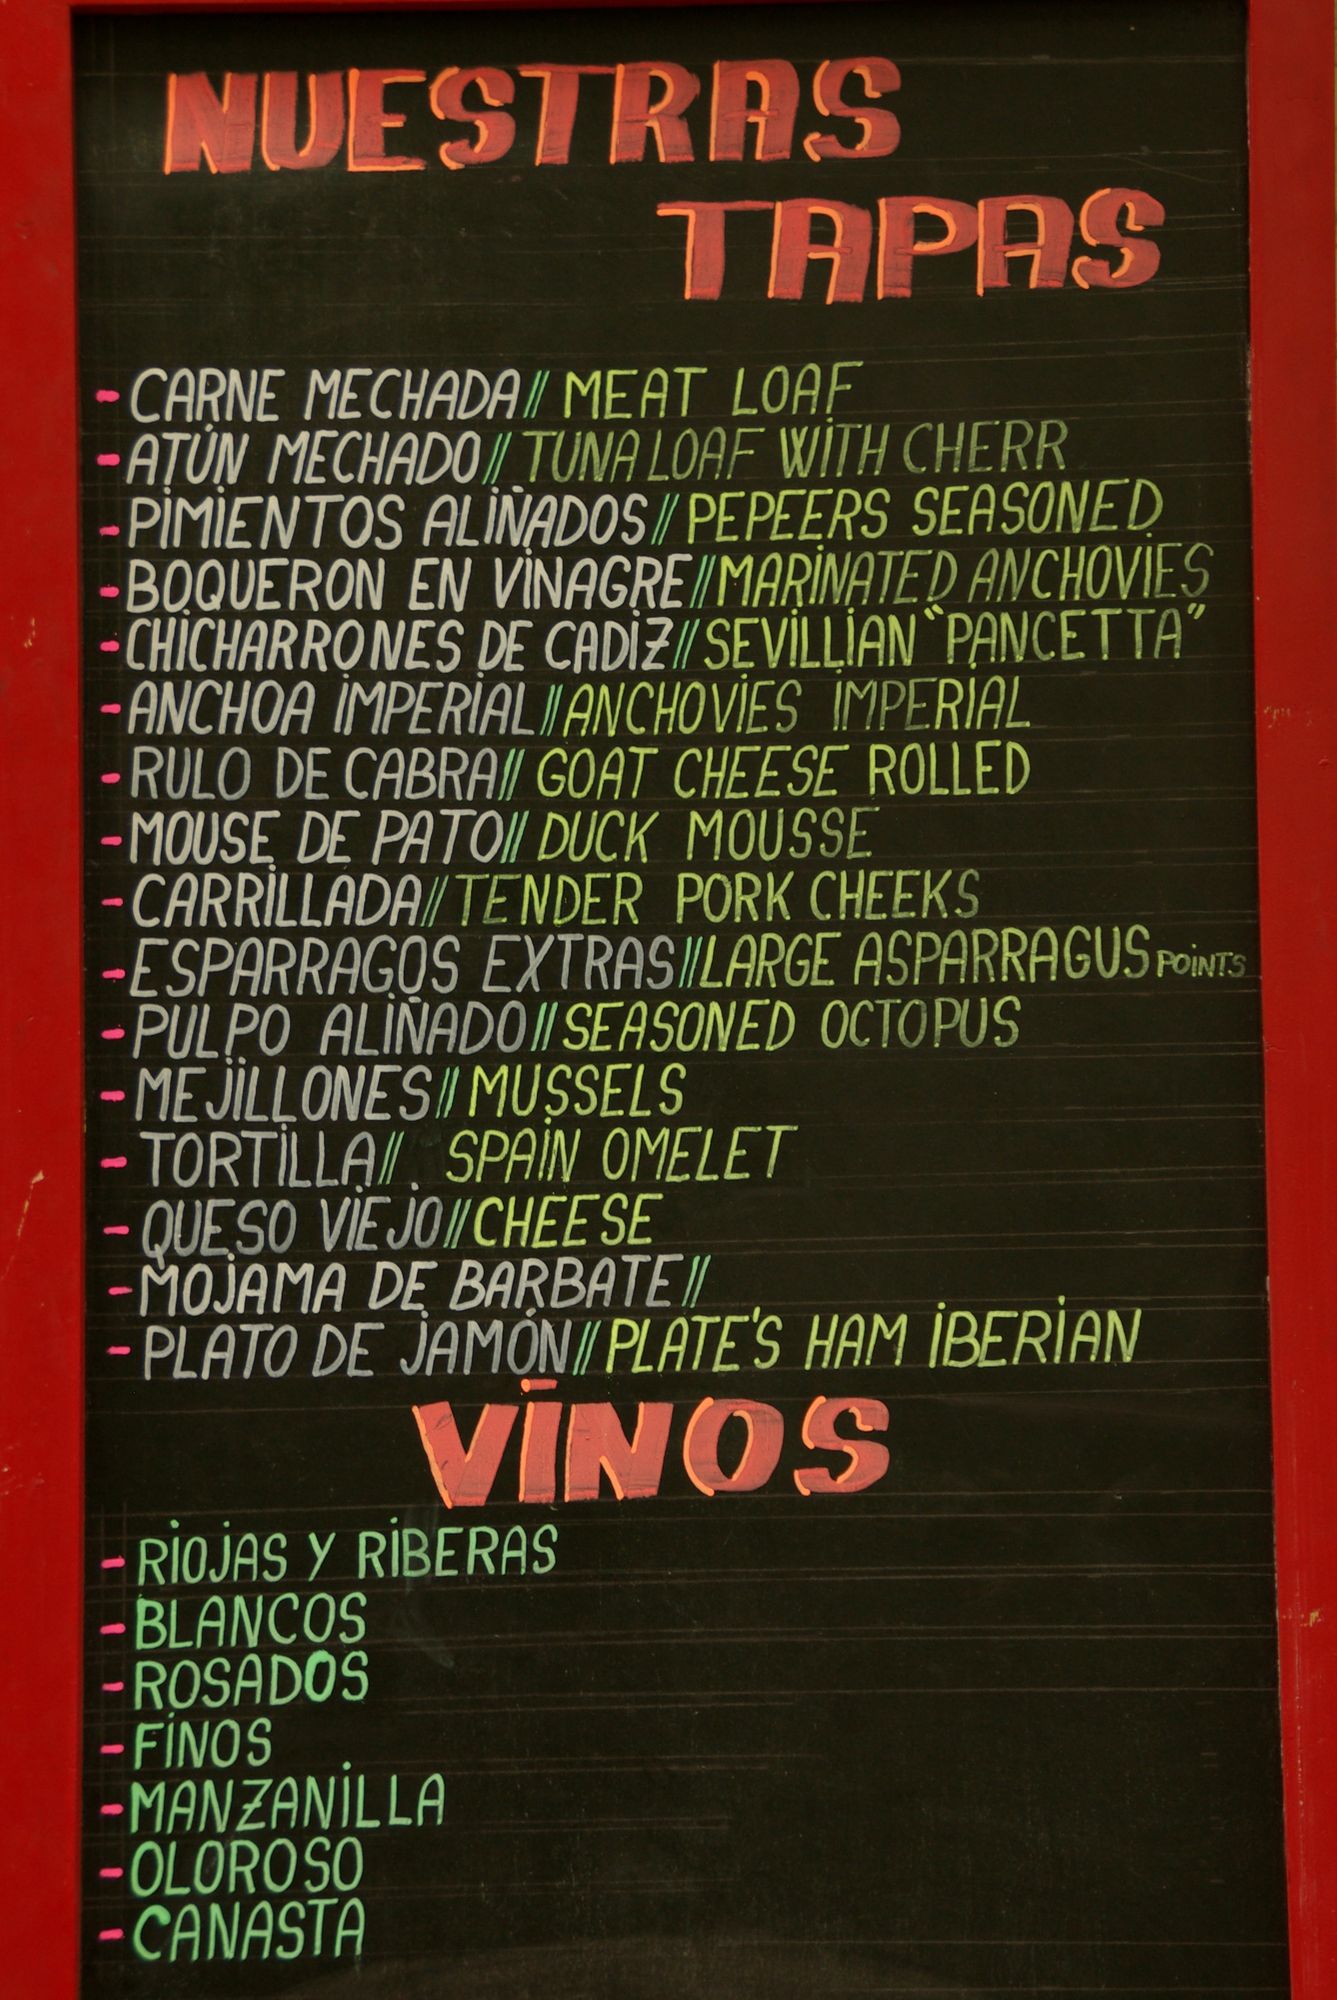 NUESTRAS
TAPAS
- CARNE MECHADA // MEAT LOAF
- ATÚN MECHADO // TUNA LOAF WITH CHERR
- PIMIENTOS ALIÑADOS // PEPEERS SEASONED
- BOQUERON EN VINAGRE // MARINATED ANCHOVIES
- CHICHARRONES DE CADIZ // SEVILLIAN "PANCETTA"
- ANCHOA IMPERIAL // ANCHOVIES IMPERIAL
- RULO DE CABRA // GOAT CHEESE ROLLED
- MOUSE DE PATO // DUCK MOUSSE
- CARRILLADA // TENDER PORK CHEEKS
- ESPARRAGOS EXTRAS // LARGE ASPARRAGUS POINTS
- PULPO ALIÑADO // SEASONED OCTOPUS
- MEJILLONES // MUSSELS
- TORTILLA // SPAIN OMELET
- QUESO VIEJO // CHEESE
- MOJAMA DE BARBATE //
- PLATO DE JAMÓN // PLATE'S HAM IBERIAN
VINOS
- RIOJAS Y RIBERAS
- BLANCOS
- ROSADOS
- FINOS
- MANZANILLA
- OLOROSO
- CANASTA